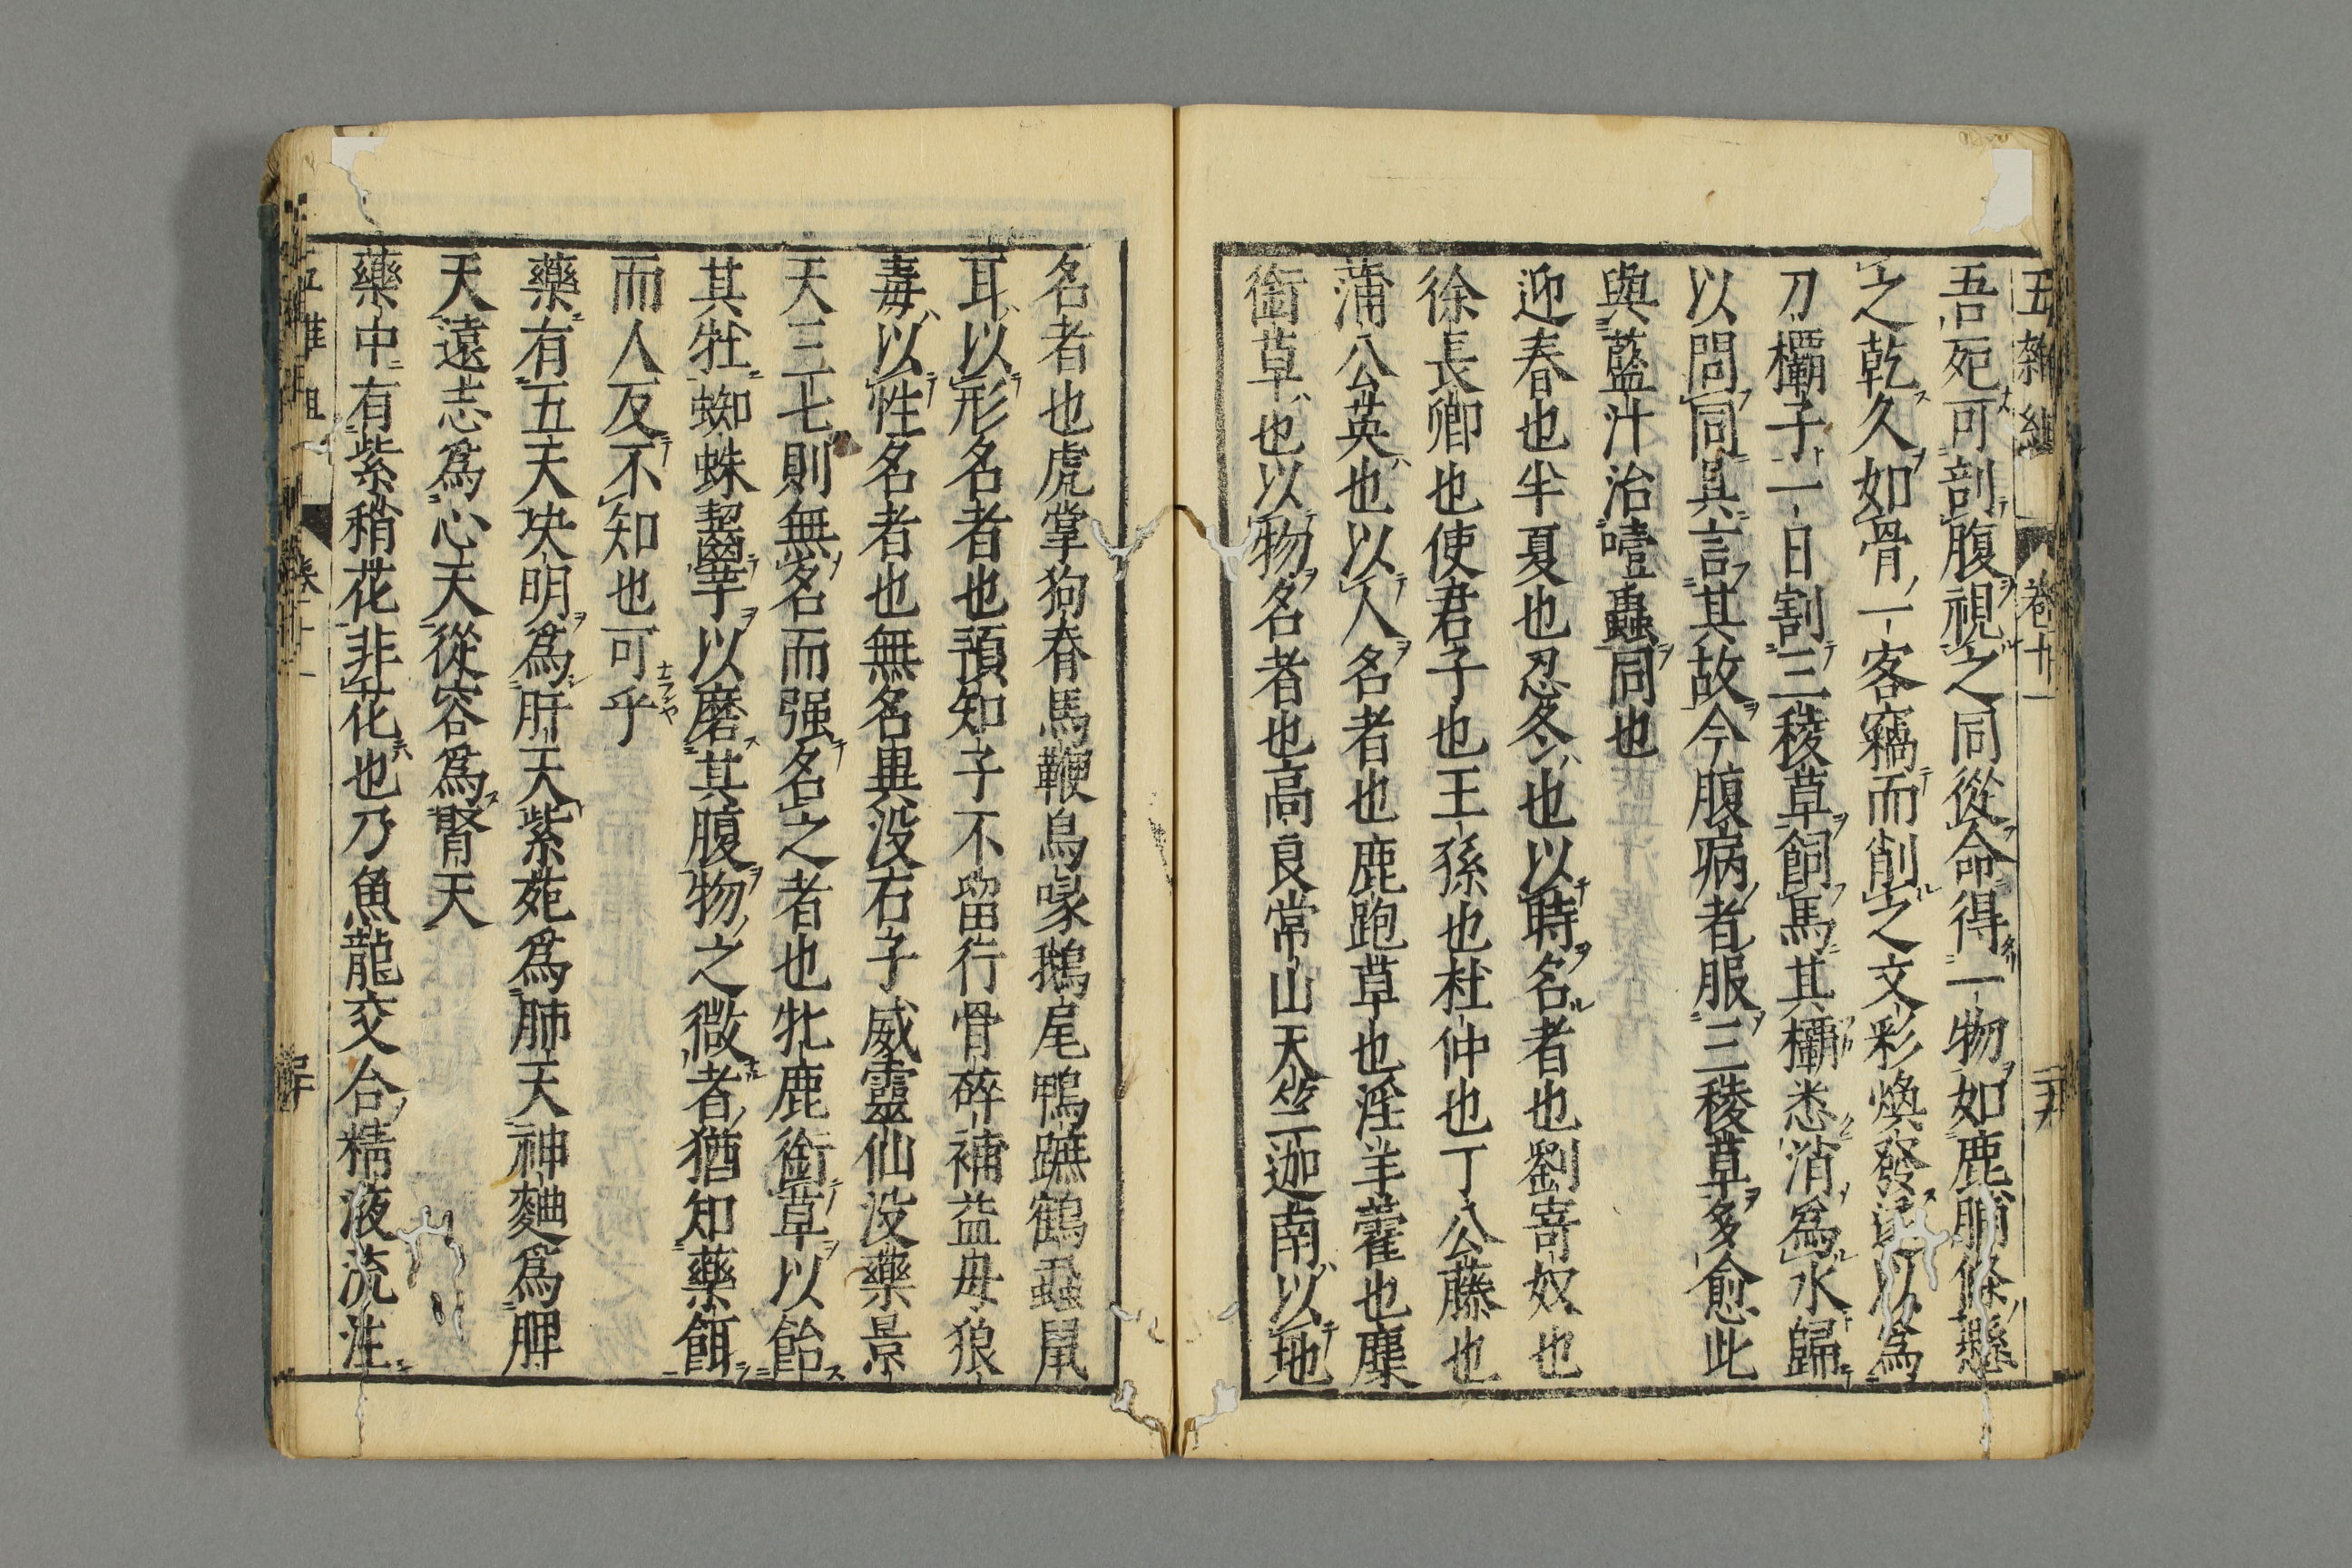 五雜組 卷十一
吾死可剖腹視之同從命得一物如鹿脯條懸
之乾久如骨一客竊而削之文彩煥發遂以為
刀欛子一日割三稜草飼馬其欛悉消為水歸
以問同具言其故今腹病者服三稜草多愈此
與藍汁治噎蟲同也
迎春也半夏也忍冬也以時名者也劉寄奴也
徐長卿也使君子也王孫也杜仲也丁公藤也
蒲公英也以人名者也鹿跑草也淫羊藿也麋
銜草也以物名者也高良常山天竺迦南以地
名者也虎掌狗脊馬鞭烏喙鵝尾鴨蹠鶴虱鼠
耳以形名者也預知子不留行骨碎補益母狼
毒以性名者也無名異没石子威靈仙没藥景
天三七則無名而强名之者也牝鹿銜草以飴
其牡蜘蛛齧芋以磨其腹物之微者猶知藥餌
而人反不知也可乎
藥有五天決明為肝天紫菀為肺天神麯為脾
天遠志為心天從容為腎天
藥中有紫稍花非花也乃魚龍交合精液流注
卷十一